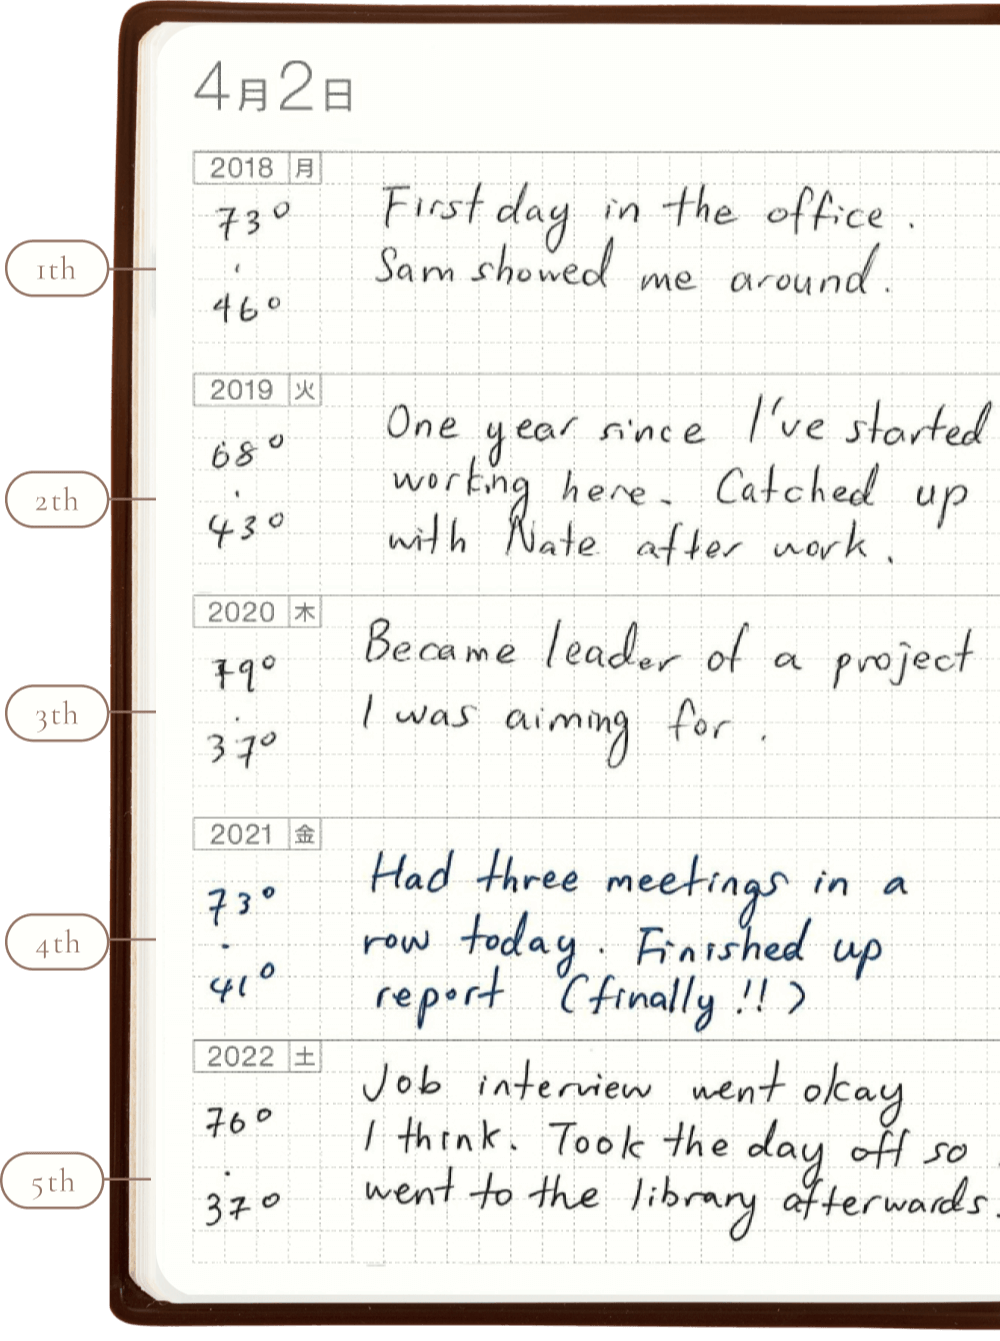 4月2日
2018 月
73°
First day in the office.
1th
Sam showed me around.
46°
2019 火
68°
One year since I've started
2th
working here. Catched up
43°
with Nate after work.
2020 木
79°
Became leader of a project
3th
I was aiming for.
37°
2021 金
73°
Had three meetings in a
4th
row today. Finished up
41°
report (finally!!)
2022 土
76°
Job interview went okay
I think. Took the day off so
5th
37°
went to the library afterwards.